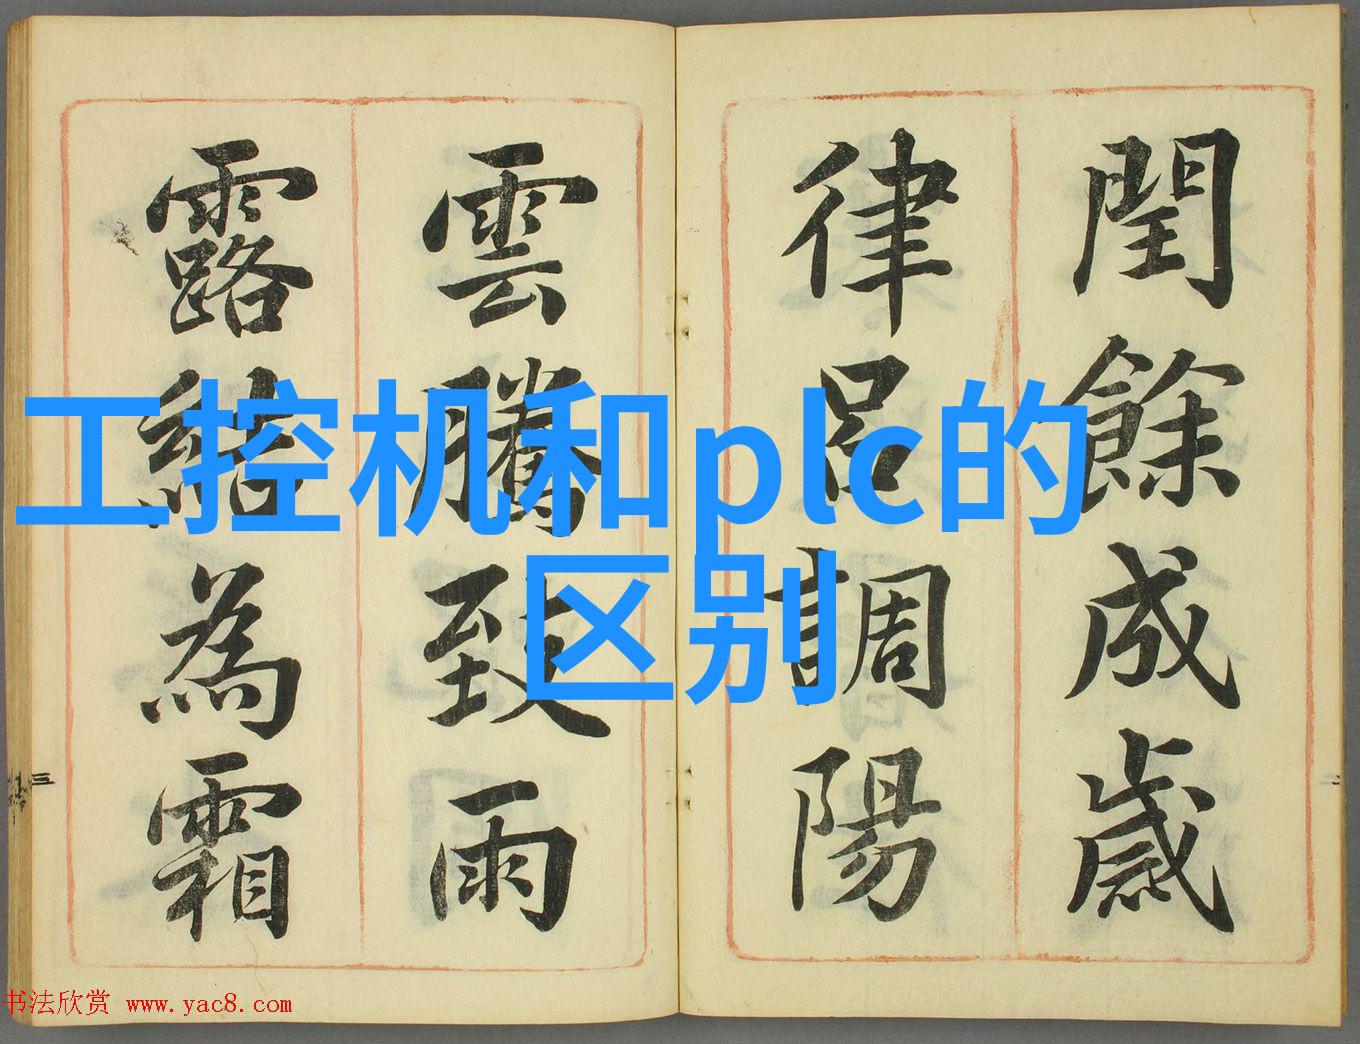 閏餘成歲
律呂調陽
雲騰致雨
露結為霜
工控机和plc的
区别
三
二
书法欣赏 www.yac8.com